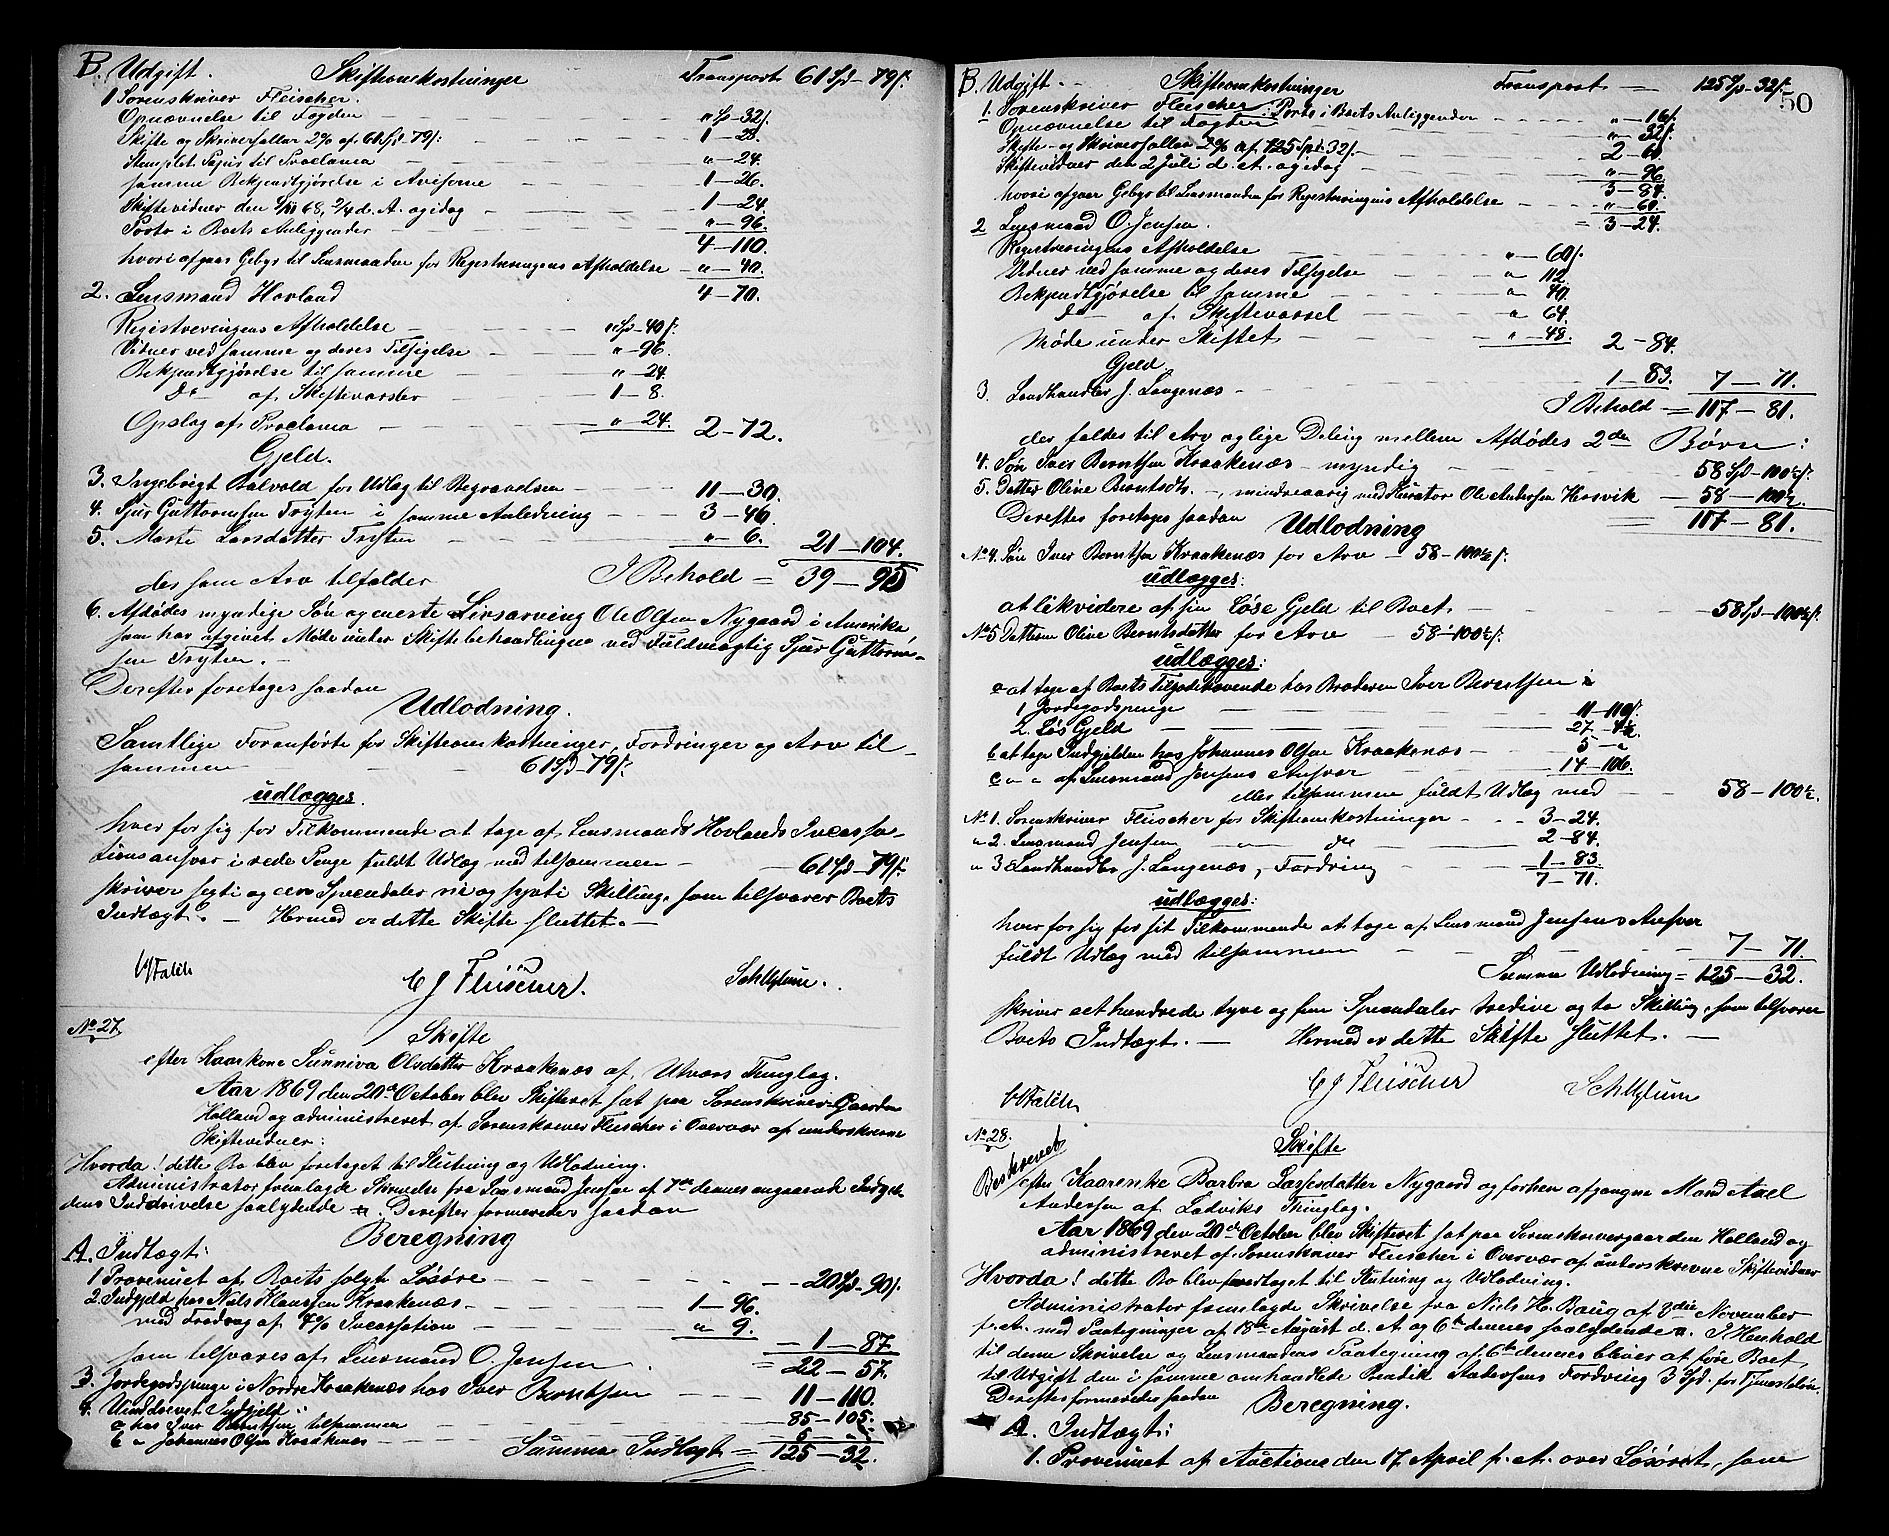 B. Udgift. Skifteomkostninger Transport 61 Spd - 79 s.
1 Sorenskriver Fleischer.
Opnævnelse til Fogden — „ Sp - 32 s.
Skifte og Skriversallær 2% af 61 Spd - 79 s: 1 - 28.
Stemplet Papir til Proclama — „ - 24.
samme Bekjendtgjørelse i Aviserne — 1 - 26.
Skiftevidner den 68, 2/4 d. A. og idag — 1 - 24
Porto i Boets Anliggender — „ - 96.
4 - 110.
hvori afgaar Gebyr til Lensmanden for Registreringens Afholdelse — „ - 40.
2. Lensmand Hovland 4 - 70.
Registreringens Afholdelse — „ Sp - 40 s.
Vidner ved samme og deres Tilsigelse — „ - 96.
Bekjendtgjørelse til samme — „ - 24.
Do af Skiftevarsler — 1 - 8.
Opslag af Proclama — „ - 24. 2 - 72.
Gjeld.
3. Ingebrigt Balvold for Udlæg til Begravelsen — 11 - 30.
4. Sjur Guttormsen Tryten i samme Anledning — 3 - 46.
5. Marte Larsdatter Tryten — „ - 6. 21 - 104.
I Behold = 39 - 95
der som Arv tilfalder
6. Afdødes myndige Søn og eneste Livsarving Ole Olsen Nygaard i Amerika
som har afgivet Møde under Skiftebehandlingen ved Fuldmægtig Sjur Guttorm-
sen Tryten. —
Derefter foretoges saadan
Udlodning.
Samtlige Foranførte for Skifteomkostninger, Fordringer og Arv til-
sammen — 61 Spd - 79 s.
udlægges.
hver for sig for Tilkommende at tage af Lensmands Hovlands Incassa-
tionsansvar i rede Penge fuldt Udlæg med tilsammen — 61 Spd - 79 s.
skriver sexti og een Speciedaler ni og sytti Skilling, som tilsvarer Boets
Indtægt. — Hermed er dette Skifte sluttet. —
C J Fleischer.
No 27.
Skifte
efter Kaarkone Sunniva Olsdatter Kraakenæs af Utværs Thinglag.
Aar 1869 den 20de October blev Skifteret sat paa Sorenskriver-Gaarden
Holland og administreret af Sorenskriver Fleischer i Overvær af underskrevne
Skiftevidner:
Hvorda! dette Bo blev foretaget til Slutning og Udlodning.
Administrator fremlagde Skrivelse fra Lensmand Jensen af 7de dennes angaaende Indgjel-
dens Inddrivelse saalydende „. Derefter formeredes saadan
Beregning
A. Indtægt:
1 Provenuet af Boets solgte Løsøre — 20 Spd - 90 s.
2. Indgjeld hos Niels Klaussen Kraakenæs — 1 - 96.
med Fradrag af 7% Incassation — „ 9.
— 1 - 87
som tilsvares af Lensmand O. Jensen = 22 - 57.
3. Jordegodspenge i Nordre Kraakenæs hos Iver Berntsen — 11 - 110.
4. Uinddrevet Indgjeld:
a hos Iver Berntsen tilsammen — 85 - 105.
b „ Johannes Olsen Kraakenæs — 5 - „
Summa Indtægt = 125 - 32.
50
B. Udgift. Skifteomkostninger Transport — 125 Sp - 32 s.
1. Sorenskriver Fleischer: Porto i Boets Anliggender — „ - 16 s.
Opnævnelse til Fogden — „ - 32 s.
Skifte- og Skriversallær 2% af 125 Spd. 32 s. — 2 - 60
Skiftevidner den 2 Juli d. A. og idag — „ - 96
3 - 84.
hvori afgaar Gebyr til Lensmanden for Registreringens Afholdelse — „ - 60.
= 3 - 24.
2 Lensmand O. Jensen.
Registreringens Afholdelse — „ - 60 s.
Vidner ved samme og deres Tilsigelse — „ 112
Bekjendtgjørelse til samme — „ 40
Do af Skiftevarsel — „ 64.
Møde under Skiftet — „ - 48. 2 - 84.
Gjeld.
3. Landhandler J. Langenæs — 1 - 83. 7 - 71.
I Behold = 117 - 81.
der faldes til Arv og lige Deling mellem Afdødes 2de Børn:
4. Søn Iver Berntsen Kraakenæs — myndig — 58 Spd - 100½ s.
5. Datter Olive Berntsdtr. —, mindreaarig med Kurator Ole Andersen Hosvik — 58 - 100½.
Derefter foretoges saadan 117 - 81.
Udlodning
No 4. Søn Iver Berntsen Kraakenæs for Arv — 58 - 100½ s.
udlægges:
at likvidere af sin Løse Gjeld til Boet — 58 Spd - 100½ s.
No 5 Datteren Olive Berntsdatter for Arv — 58 - 100½ s.
udlægges:
a at tage af Boets Tilgodehavende hos Broderen Iver Berntsen i
1 Jordegodspenge — 11 - 110 s.
2. Løs Gjeld — 27 - 4½.
b at tage Indgjelden hos Johannes Olsen Kraakenæs — 5 - „
c „ „ af Lensmand Jensens Ansvar — 14 - 106.
eller tilsammen fuldt Udlæg med — 58 - 100½.
No 1. Sorenskriver Fleischer for Skifteomkostninger — 3 - 24.
„ 2. Lensmand Jensen „ do 2 - 84.
„ 3 Landhandler J. Langenæs, Fordring 1 - 83.
7 - 71.
udlægges:
hver for sig for sit Tilkommende at tage af Lensmand Jensens Ansvar
fuldt Udlæg med tilsammen — 7 - 71.
Summa Udlodning = 125 - 32.
skriver eet hundrede tyve og fem Speciedaler tredive og to Skilling, som tilsvarer
Boets Indtægt. — Hermed er dette Skifte sluttet. —
C J Fleischer
No 28.
Beskrevet
Skifte
efter Kaarenke Barbra Lassesdatter Nygaard og forhen afgangne Mand Axel
Andersen af Ladviks Thinglag.
Aar 1869 den 20de October blev Skifteret sat paa Sorenskrivergaarden Holland og
administreret af Sorenskriver Fleischer i Overvær af underskrevne Skiftevidner
Hvorda! dette Bo blev foretaget til Slutning og Udlodning.
Administrator fremlagde Skrivelse fra Niels H. Baug af 8die November
f. A. med Paategninger af 18de August d. A. og 6te dennes saalydende „. I Henhold
til denne Skrivelse og Lensmandens Paategning af 6te dennes bliver at føre Boet
til Udgift den i samme omhandlede Bendik Andersens Fordring 3 Spd. for Tjenesteløn.
Derefter formeredes saadan
Beregning.
A. Indtægt:
1. Provenuet af Auctionen den 17 April f. A. over Løsøret, som